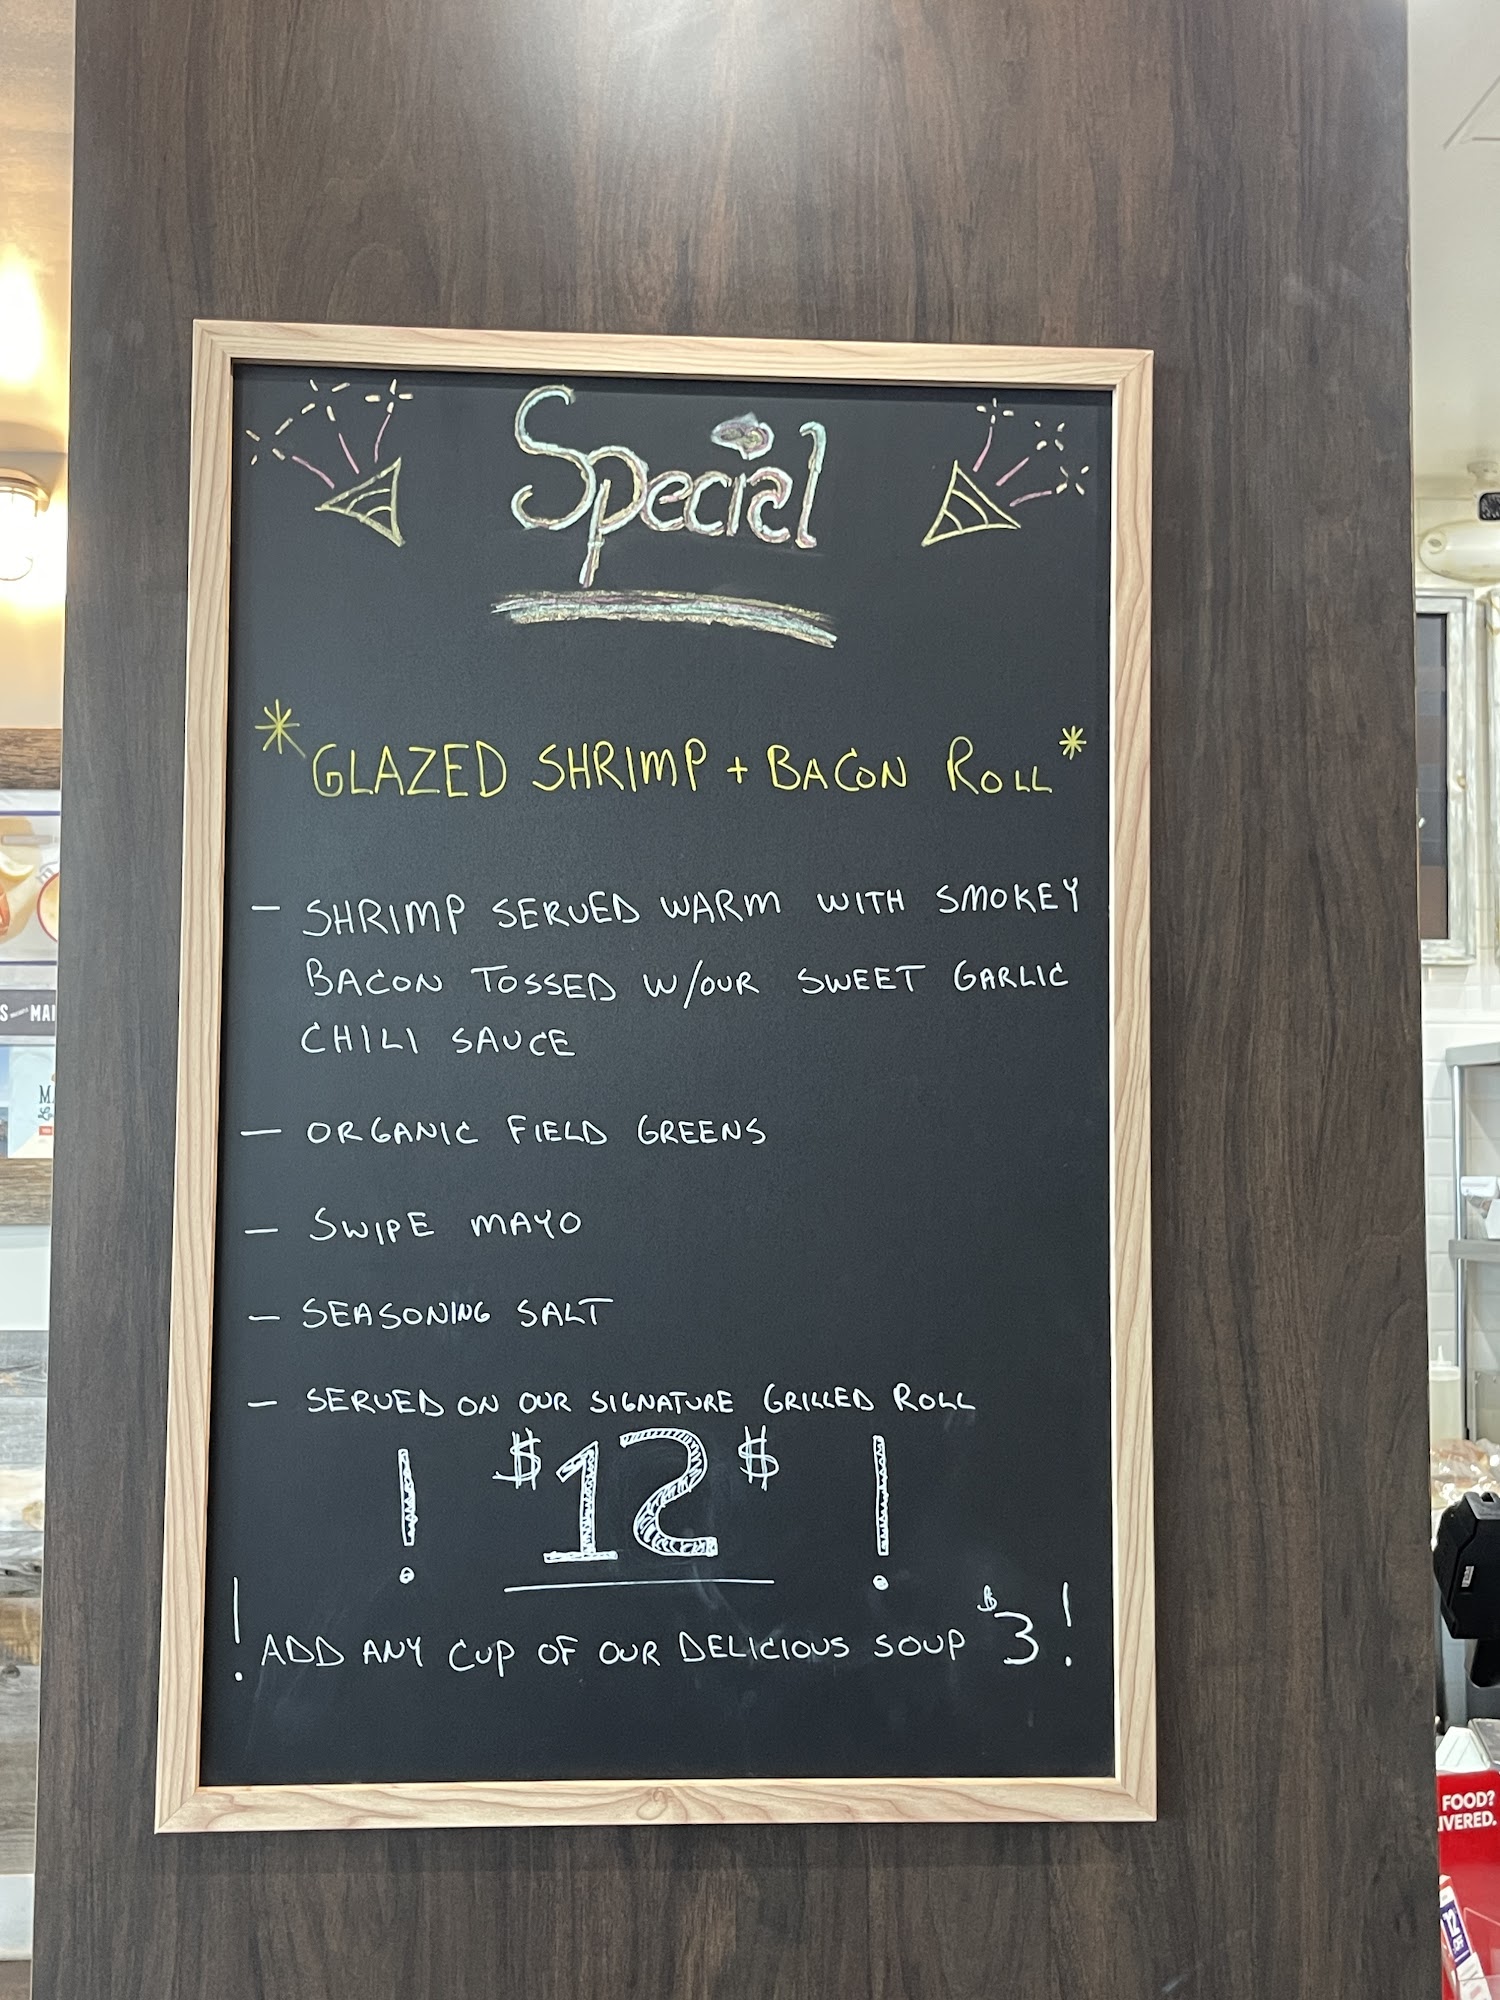 Special
*GLAZED SHRIMP + BACON ROLL*
- SHRIMP SERVED WARM WITH SMOKEY
BACON TOSSED W/OUR SWEET GARLIC
CHILI SAUCE
- ORGANIC FIELD GREENS
- SWIPE MAYO
- SEASONING SALT
- SERVED ON OUR SIGNATURE GRILLED ROLL
! $12$ !
! ADD ANY CUP OF OUR DELICIOUS SOUP $3 !
FOOD?